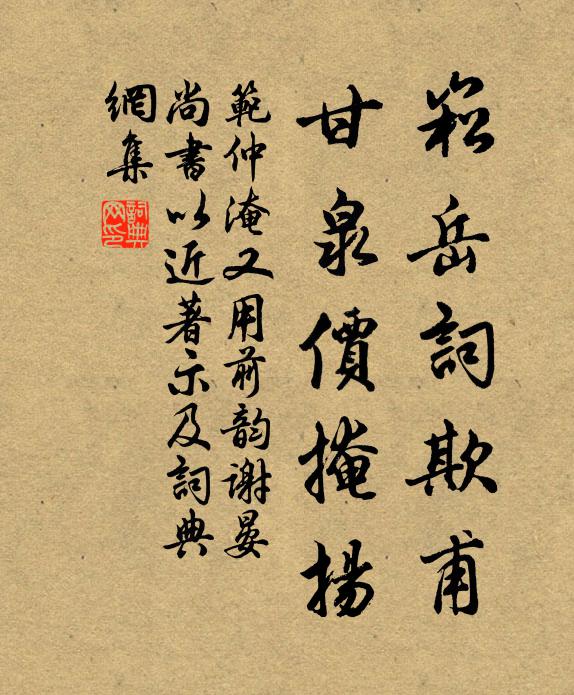 崧岳詞欺甫
甘泉價掩揚
範仲淹又用前韵謝晏
尚書以近著示及詞典
網集
詞典
网印